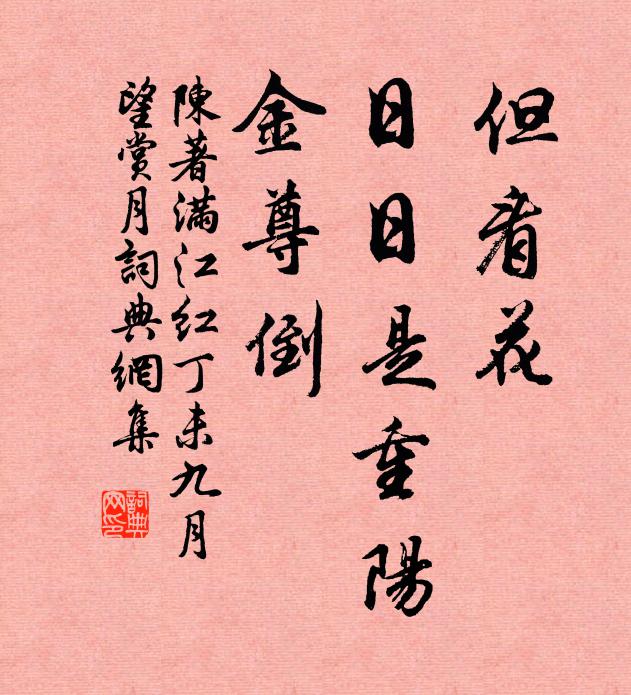 但看花
日日是重陽
金尊倒
陳著滿江紅丁未九月
望賞月詞典網集
詞典
网印